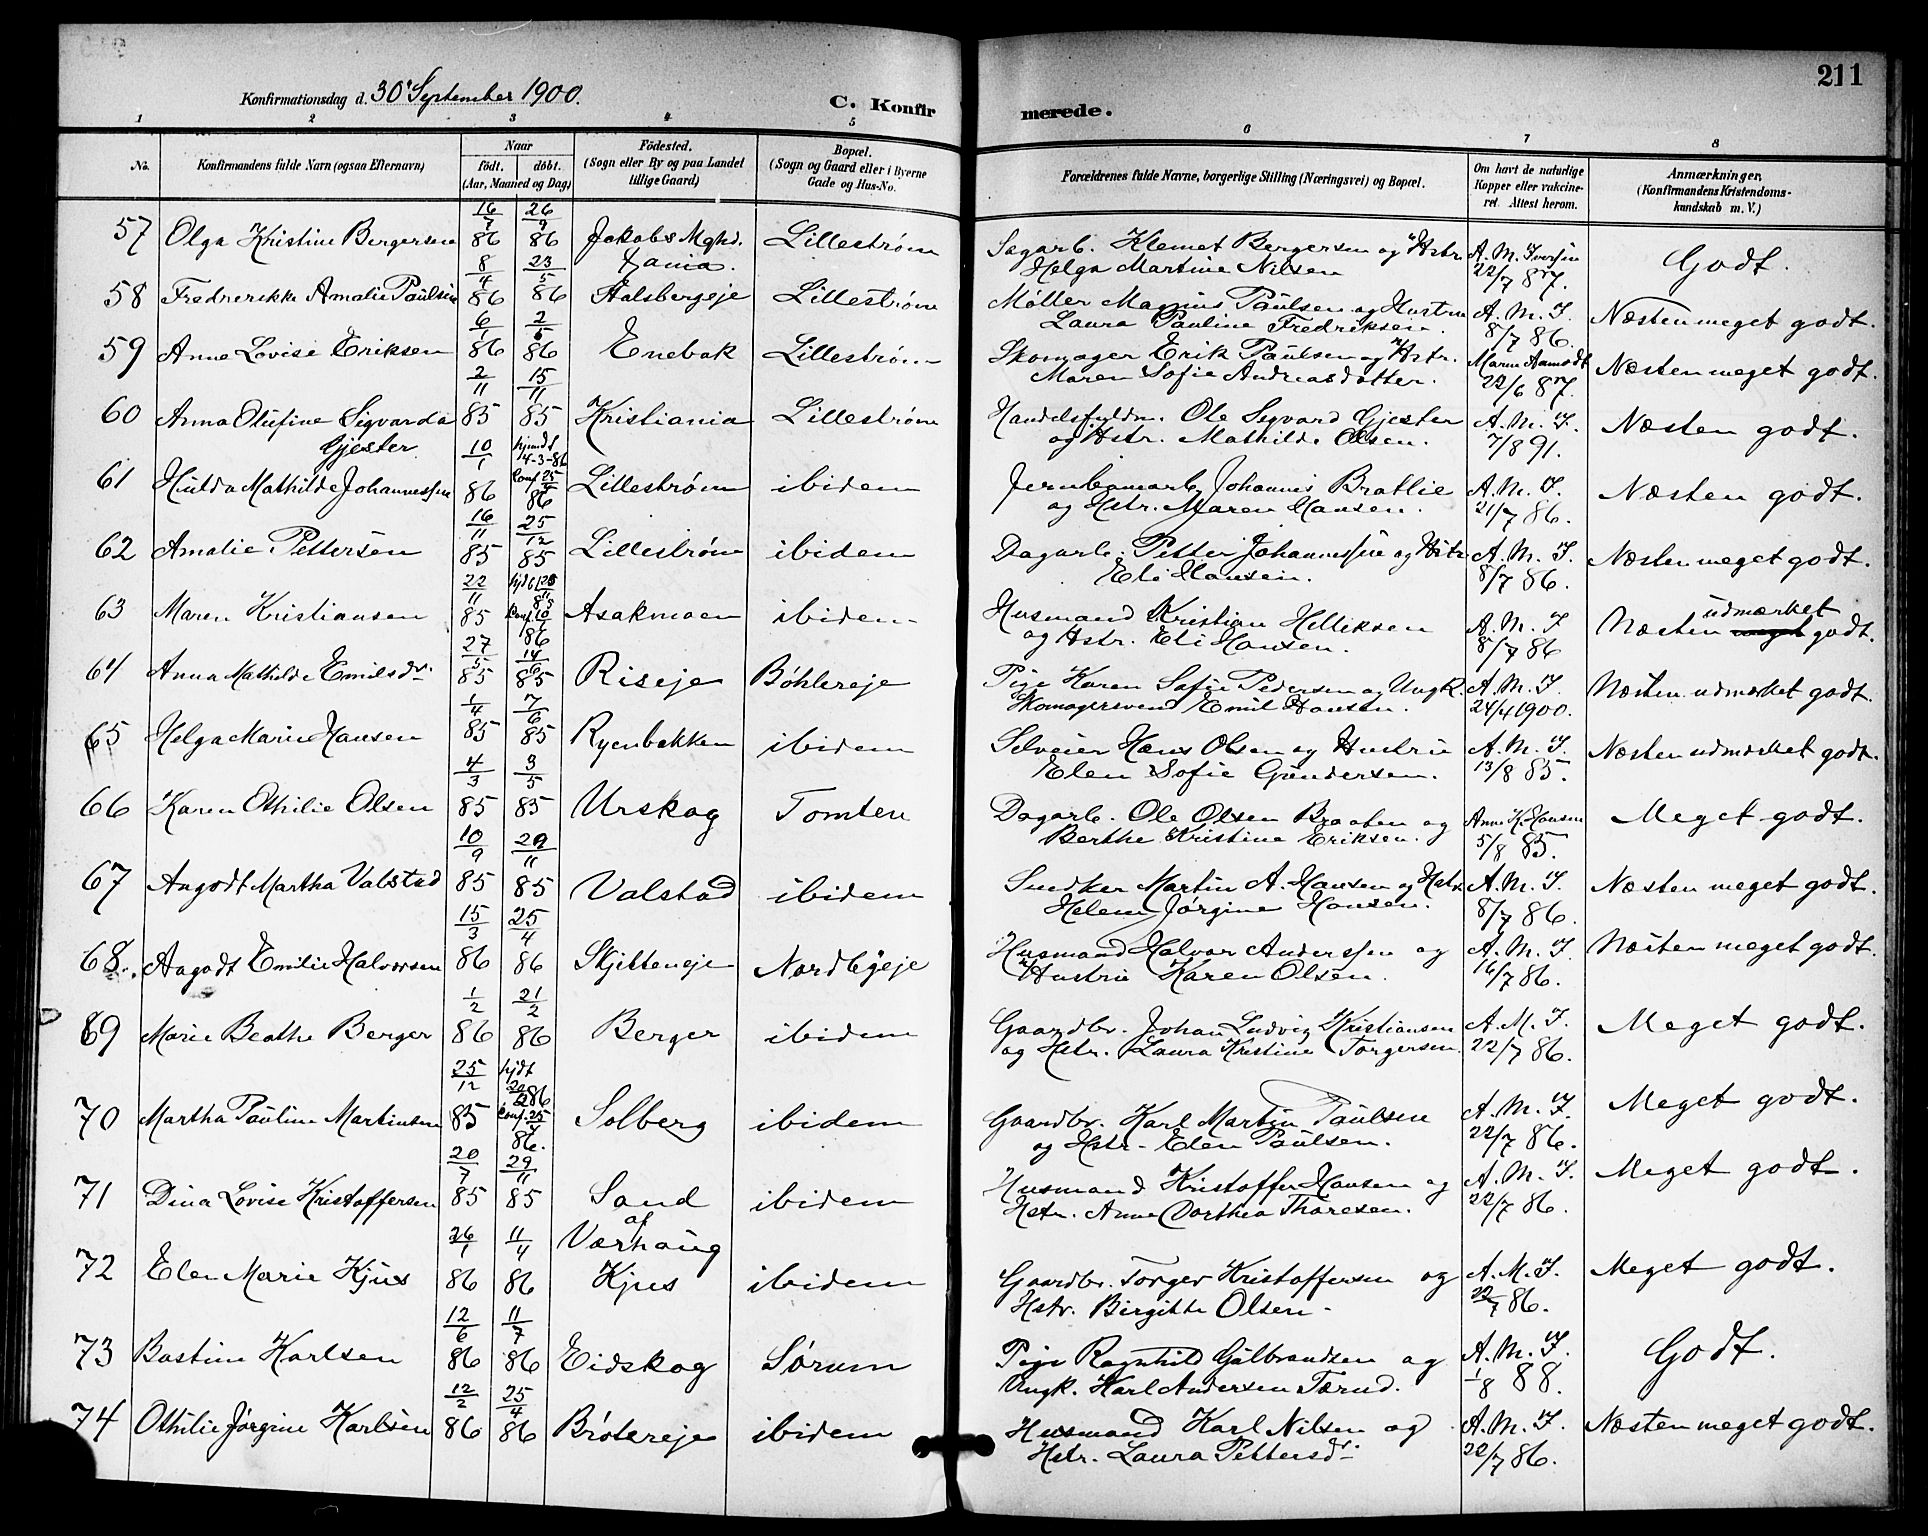 211
Konfirmationsdag d. 30' September 1900.
C. Konfir merede.
1 2 3 4 5 6 7 8
No. Konfirmandens fulde Navn (ogsaa Efternavn) Naar født. døbt. (Aar, Maaned og Dag) Fødested. (Sogn eller By og paa Landet tillige Gaard) Bopæl. (Sogn og Gaard eller i Byerne Gade og Hus-No. Forældrenes fulde Navne, borgerlige Stilling (Næringsvei) og Bopæl. Om havt de naturlige Kopper eller vakcineret. Attest herom. Anmærkninger, (Konfirmandens Kristendomskundskab m. V.)
57 Olga Kristine Bergersen 16/7 86 26/9 86 Jakobs Mghd. Lillestrøm Sagarb. Klemet Bergersen og Hstr. A. M. Iversen Godt.
Helga Martine Nilsen 22/7 87.
58 Fredrerikke Amalie Paulsen 8/4 86 23/5 86 Aalsbergeje Lillestrøm Møller Magnus Paulsen og Hustru A. M. I. Næsten meget godt.
Laura Pauline Fredriksen. 8/7 86.
59 Anna Lovise Eriksen 6/1 86 2/5 86 Enebak Lillestrøm Skomager Erik Paulsen og Hstr. Maren Aamodt Næsten meget godt.
Maren Sofie Andreasdatter. 22/6 87.
60 Anna Olufine Sigvarda 2/11 85 15/11 85 Kristiania Lillestrøm Handelsfuldm. Ole Sigvard Gjester A. M. I. Næsten godt.
Gjester. og Hstr. Mathilde Olsen. 7/8 91.
61 Hulda Mathilde Johannessen 10/1 86 hjemdt 4-3-86 Conf 25/4 86 Lillestrøm ibidem Jernbanearb. Johannes Bratlie A. M. I. Næsten godt.
og Hstr. Maren Hansen. 21/7 86.
62 Amalie Pettersen 16/11 85 25/12 85 Lillestrøm ibidem Dagarb. Petter Johannessen og Hstr A. M. I. Næsten meget godt.
Eli Hansen. 8/7 86.
63 Maren Kristiansen 22/11 85 Asakmoen ibidem Husmand Kristian Helliksen A. M. I Næsten meget udmærket godt.
og Hstr. Eli Hansen. 8/7 86
64 Anna Mathilde Emilsdr. 27/5 85 14/6 85 Riseje Bøhlereje Pige Karen Sofie Pedersen og Ungk. A. M. I. Næsten udmærket godt.
Skomagersvend Emil Hansen. 24/4 1900.
65 Helga Marie Hansen 1/4 85 7/6 85 Ryenbakken ibidem Selveier Hans Olsen og Hustru A. M. I. Næsten udmærket godt.
Elen Sofie Gundersen. 13/8 85.
66 Karen Othilie Olsen 4/3 85 3/5 85 Urskog Tomten Dagarb. Ole Olsen Braaten og Anne K. Hansen Meget godt.
Berthe Kristine Eriksen. 5/8 85.
67 Aagodt Martha Valstad 10/9 85 29/11 85 Valstad ibidem Snedker Martin A. Hansen og Hstr A. M. I. Næsten meget godt.
Helene Jørgine Hansen. 8/7 86.
68. Aagodt Emilie Halvorsen 15/3 86 25/4 86 Skjetteneje Nordbyeje Husmand Halvor Anderssen og A. M. I. Næsten meget godt.
Hustru Karen Olsen. 16/7 86.
69 Marie Beathe Berger 1/2 86 21/2 86 Berger ibidem Gaardbr. Johan Ludvig Kristiansen A. M. I. Meget godt.
og Hstr. Laura Kristine Torgersen. 22/7 86.
70 Martha Pauline Martinsen 25/12 85 hjdt Conf. 25/4 86. Solberg ibidem Gaardbr. Karl Martin Paulsen A. M. I. Meget godt.
og Hstr. Elen Paulsen. 22/7 86.
71 Dina Lovise Kristoffersen 20/7 85 29/11 85 Sand ibidem Husmand Kristoffer Hansen og A. M. I. Meget godt.
af Værhaug Hstr. Anne Dorthea Thoresen. 22/7 86.
72 Elen Marie Kjus 26/1 86 11/4 86 Kjus ibidem Gaardbr. Torger Kristoffersen og A. M. I. Meget godt.
Hstr. Birgitte Olsen. 22/7 86.
73 Bastine Karlsen 12/6 86 11/7 86 Eidskog Sørum Pige Ragnhild Gulbrandsen og A. M. I. Godt.
Ungk. Karl Andersen Tærud. 1/8 88.
74 Othilie Jørgine Karlsen 12/2 86 25/4 86 Brøtereje ibidem Husmand Karl Nilsen og A. M. I. Næsten meget godt.
Hstr. Laura Pettersdr. 22/7 86.